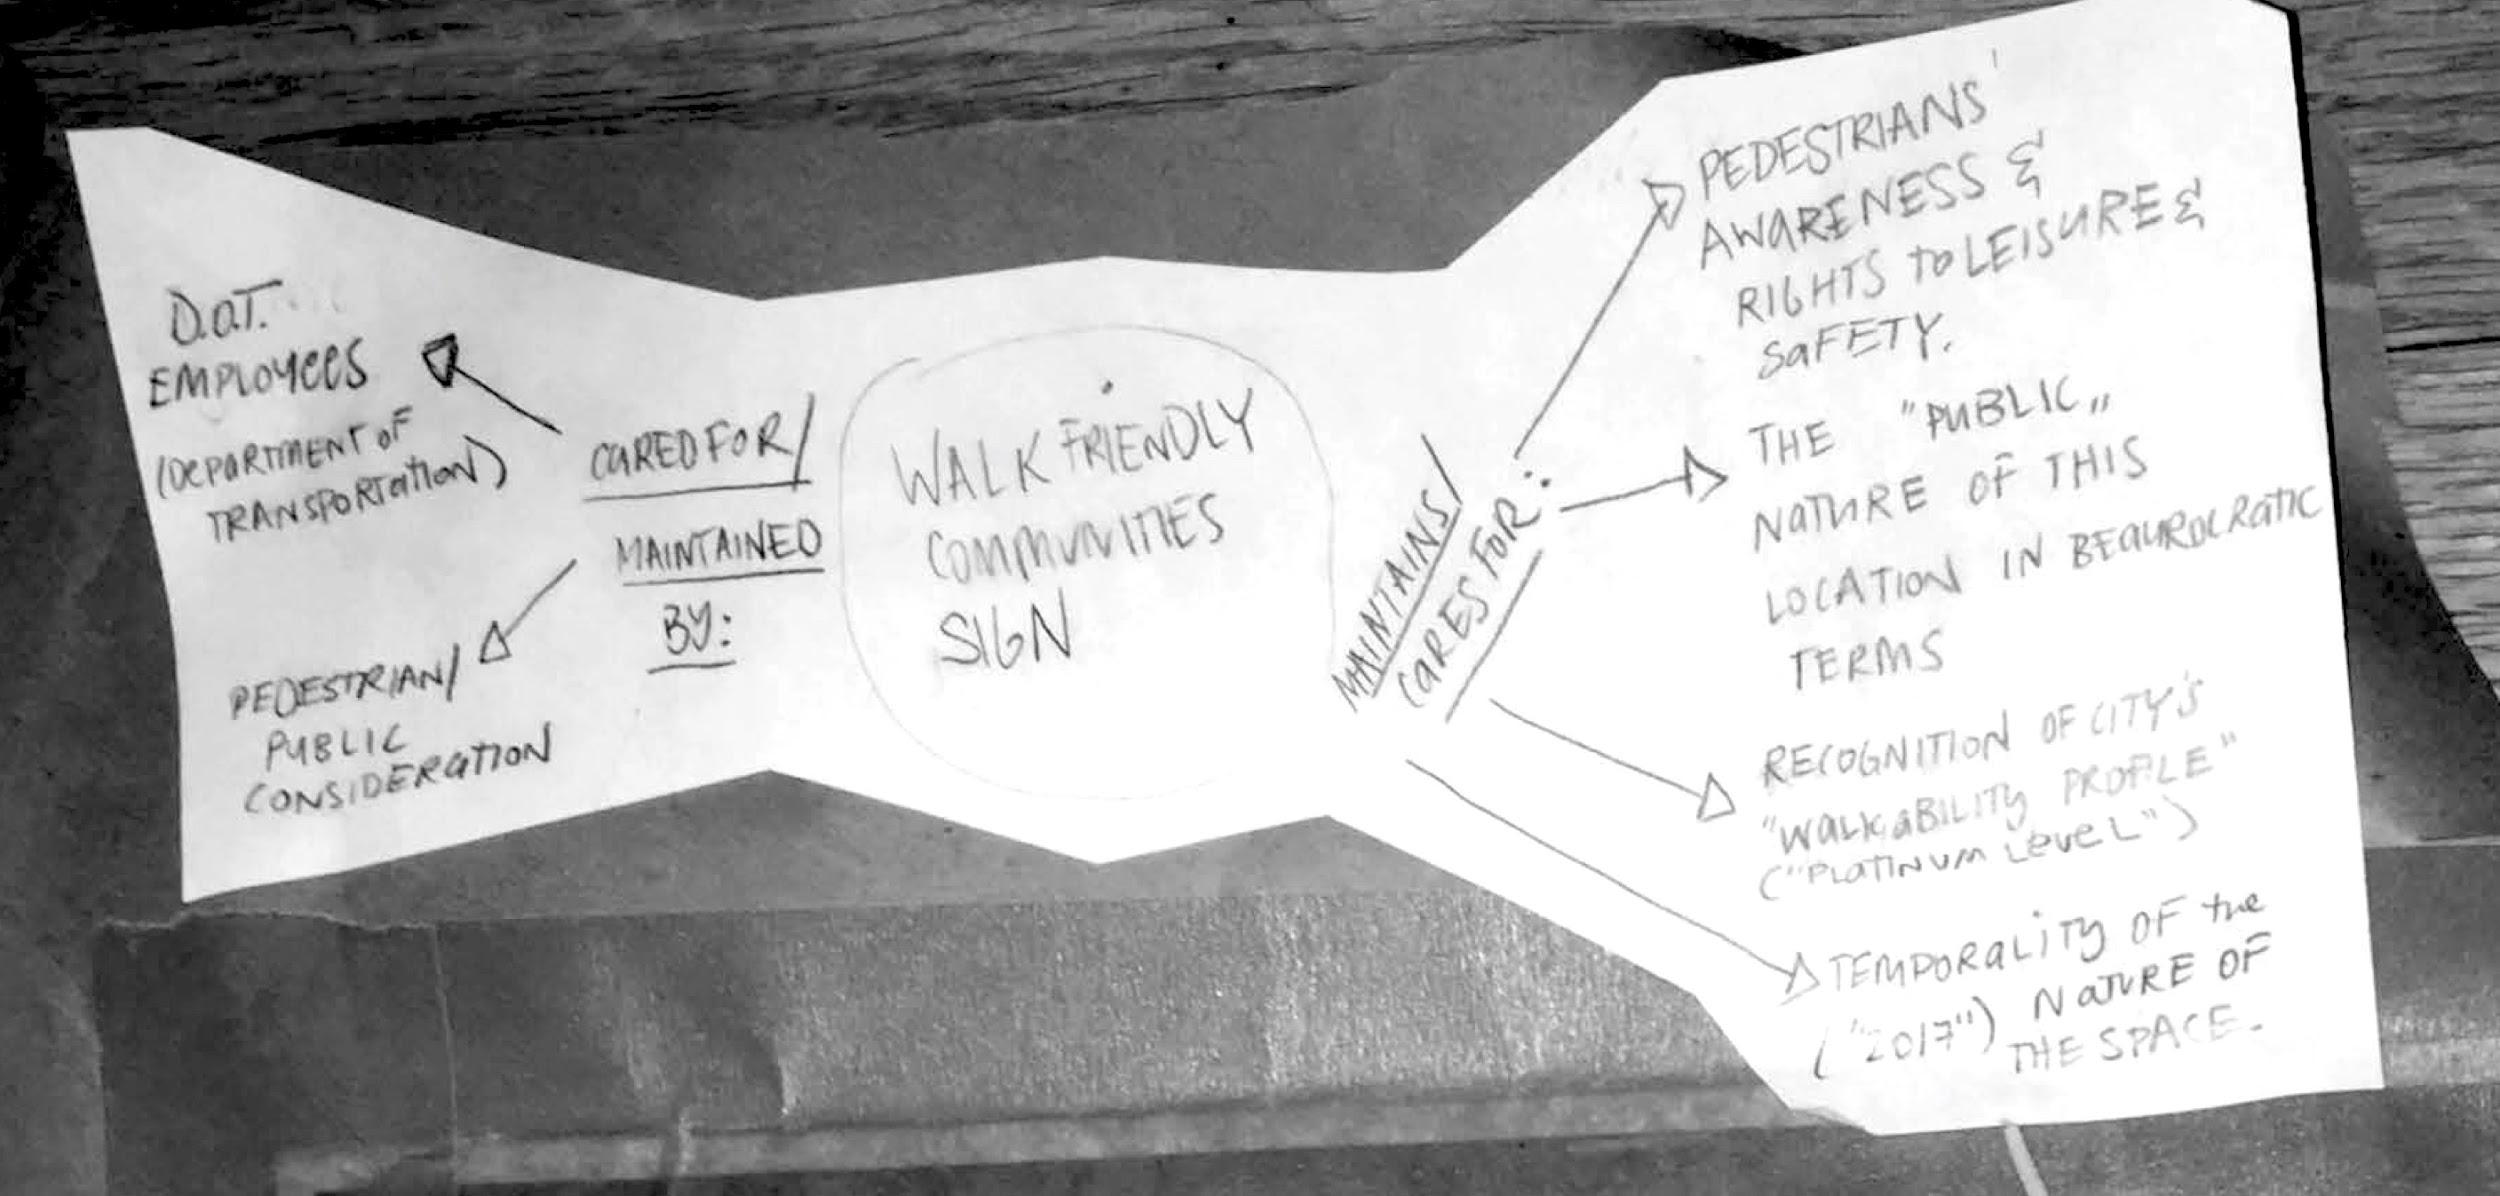 D.O.T.
EMPLOYEES
(DEPARTMENT OF
TRANSPORTATION)
PEDESTRIAN/
PUBLIC
CONSIDERATION
CARED FOR/
MAINTAINED
BY:
WALK FRIENDLY
COMMUNITIES
SIGN
MAINTAINS/
CARES FOR:
PEDESTRIANS'
AWARENESS &
RIGHTS TO LEISURE &
SAFETY.
THE "PUBLIC"
NATURE OF THIS
LOCATION IN BEAUROCRATIC
TERMS
RECOGNITION OF CITY'S
"WALKABILITY PROFILE"
("PLATINUM LEVEL")
TEMPORALITY OF THE
("2017") NATURE OF
THE SPACE.